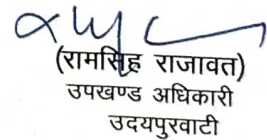 (रामसिंह राजावत)
उपखण्ड अधिकारी
उदयपुरवाटी